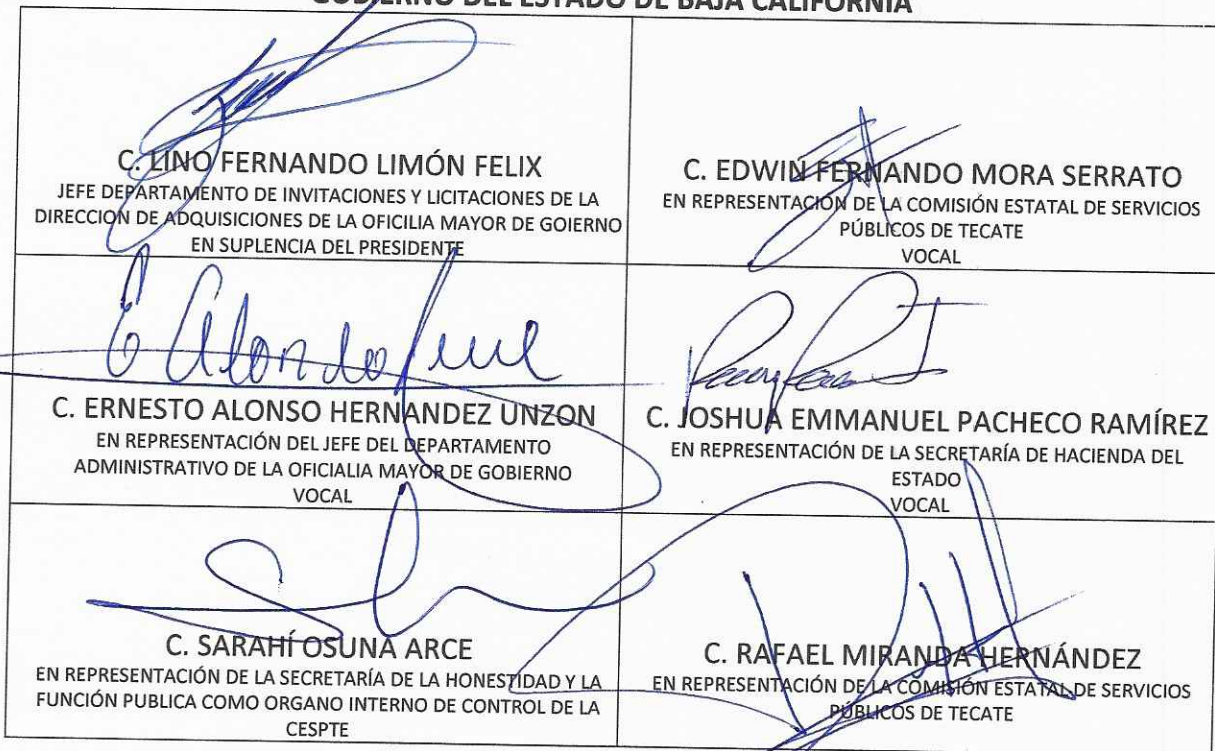 GOBIERNO DEL ESTADO DE BAJA CALIFORNIA
C. LINO FERNANDO LIMÓN FELIX
JEFE DEPARTAMENTO DE INVITACIONES Y LICITACIONES DE LA
DIRECCIÓN DE ADQUISICIONES DE LA OFICILIA MAYOR DE GOIERNO
EN SUPLENCIA DEL PRESIDENTE
C. EDWIN FERNANDO MORA SERRATO
EN REPRESENTACIÓN DE LA COMISIÓN ESTATAL DE SERVICIOS
PÚBLICOS DE TECATE
VOCAL
C. ERNESTO ALONSO HERNANDEZ UNZON
EN REPRESENTACIÓN DEL JEFE DEL DEPARTAMENTO
ADMINISTRATIVO DE LA OFICIALIA MAYOR DE GOBIERNO
VOCAL
C. JOSHUA EMMANUEL PACHECO RAMÍREZ
EN REPRESENTACIÓN DE LA SECRETARÍA DE HACIENDA DEL
ESTADO
VOCAL
C. SARAHÍ OSUNA ARCE
EN REPRESENTACIÓN DE LA SECRETARÍA DE LA HONESTIDAD Y LA
FUNCIÓN PUBLICA COMO ORGANO INTERNO DE CONTROL DE LA
CESPTE
C. RAFAEL MIRANDA HERNÁNDEZ
EN REPRESENTACIÓN DE LA COMISIÓN ESTATAL DE SERVICIOS
PÚBLICOS DE TECATE